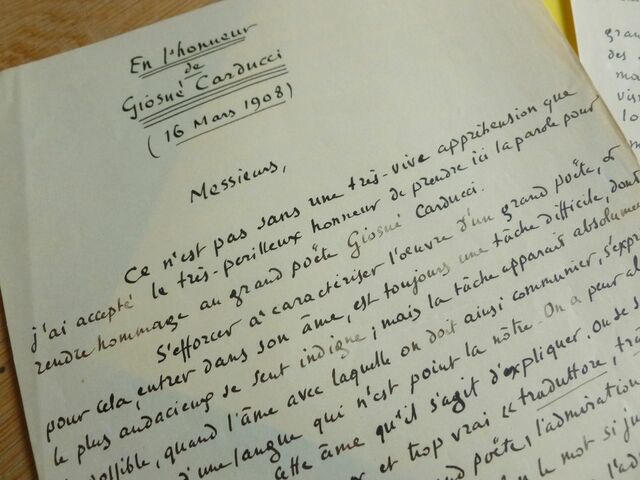 En l'honneur
de
Giosué Carducci
(16 Mars 1908)
Messieurs,
Ce n'est pas sans une très-vive appréhension que
j'ai accepté le très-périlleux honneur de prendre ici la parole pour
rendre hommage au grand poëte Giosué Carducci.
S'efforcer à caractériser l'oeuvre d'un grand poëte, et
pour cela, entrer dans son âme, est toujours une tâche difficile, dont
le plus audacieux se sent indigne; mais la tâche apparait absolument
quand l'âme avec laquelle on doit ainsi communier, s'expri
d'une langue qui n'est point la nôtre. On a peur al
cette âme qu'il s'agit d'expliquer. On se s
er et trop vrai « traduttore, tra
poëte, l'admiration
le mot si ju
gran
des
ma
vis
lo